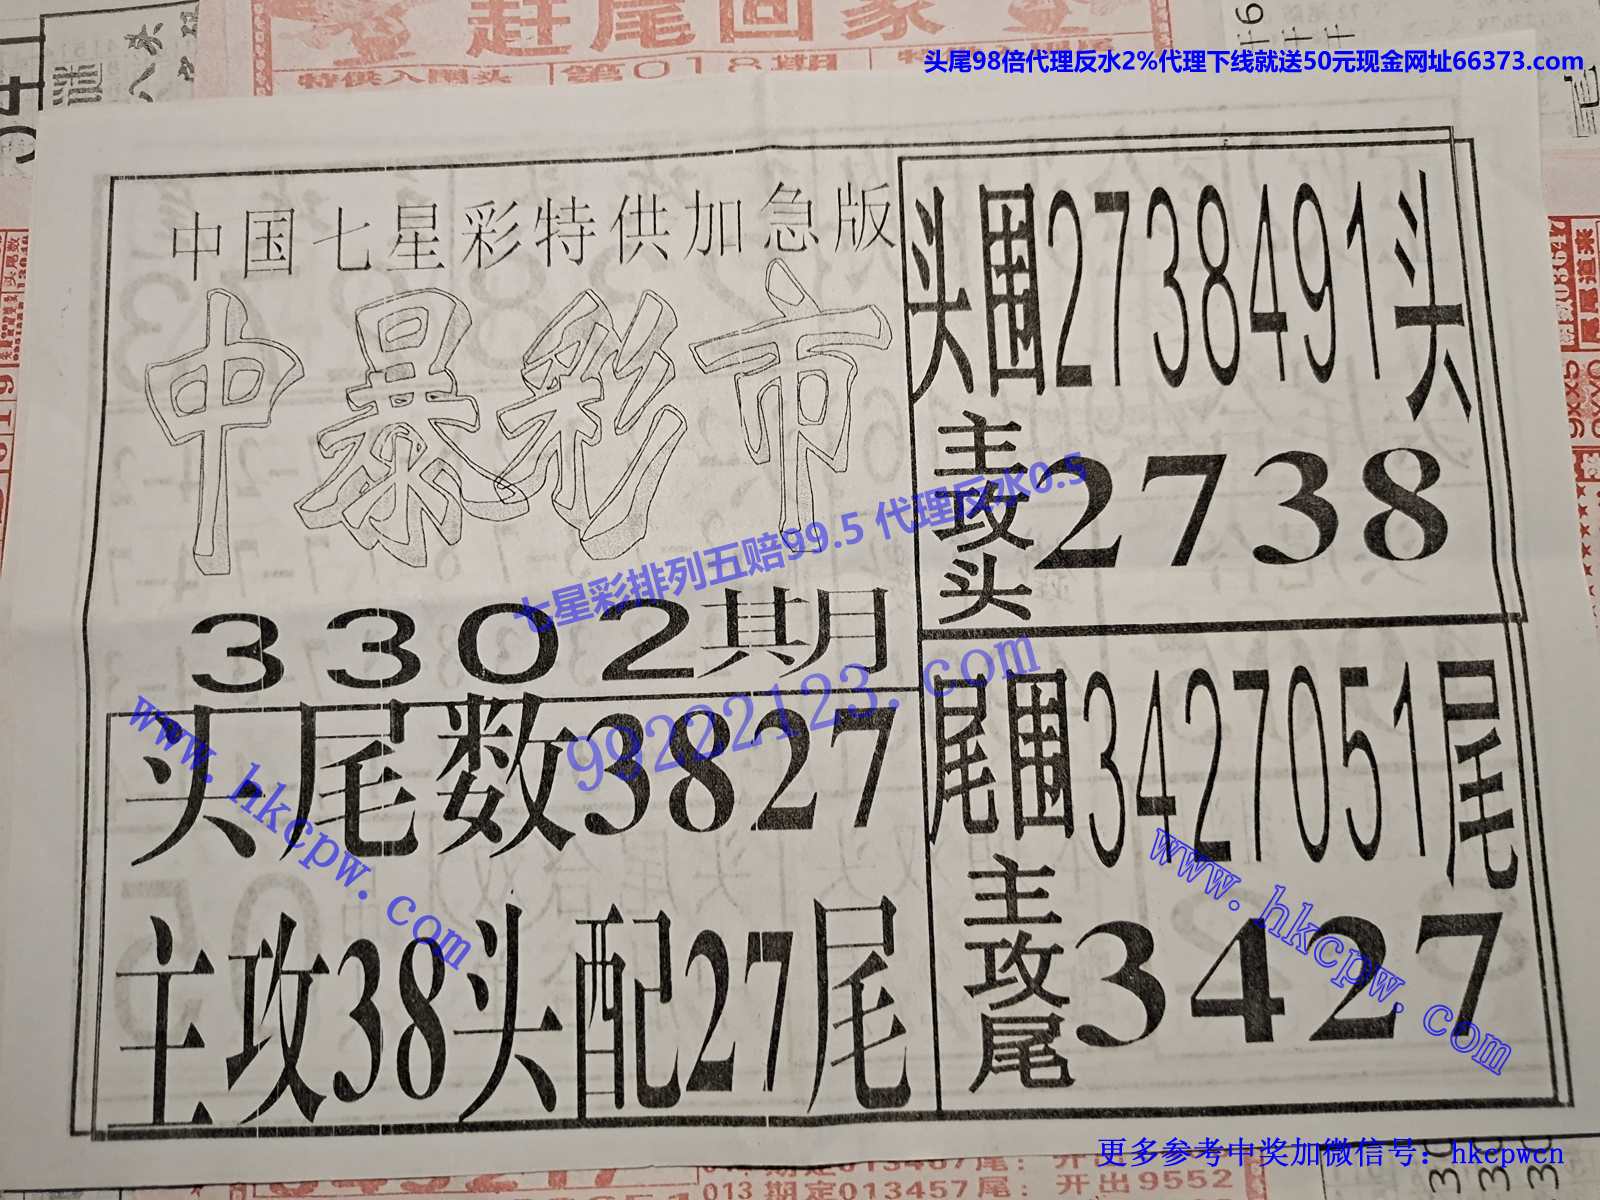 赶尾回家
特供入围头
第018期
头尾98倍代理反水2%代理下线就送50元现金网址66373.com
中国七星彩特供加急版
中暴彩市
3302期
头尾数3827
主攻38头配27尾
头围2738491头
主攻头2738
尾围3427051尾
主攻尾3427
七星彩排列五赔99.5 代理反水0.5
99222123.com
www.hkcpw.com
www.hkcpw.com
更多参考中奖加微信号：hkcpwcn
013期定013457尾：开出9552